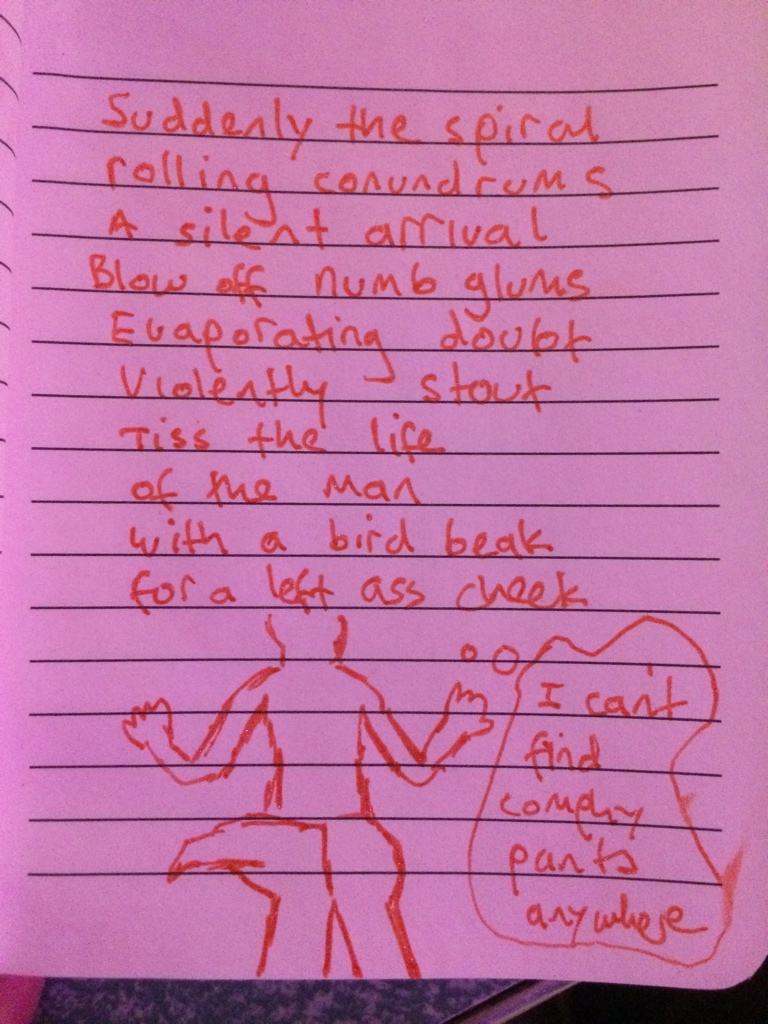 Suddenly the spiral
rolling conundrums
A silent arrival
Blow off numb glums
Evaporating doubt
Violently stout
Tiss the life
of the man
with a bird beak
for a left ass cheek
I can't
find
comphy
pants
anywhere